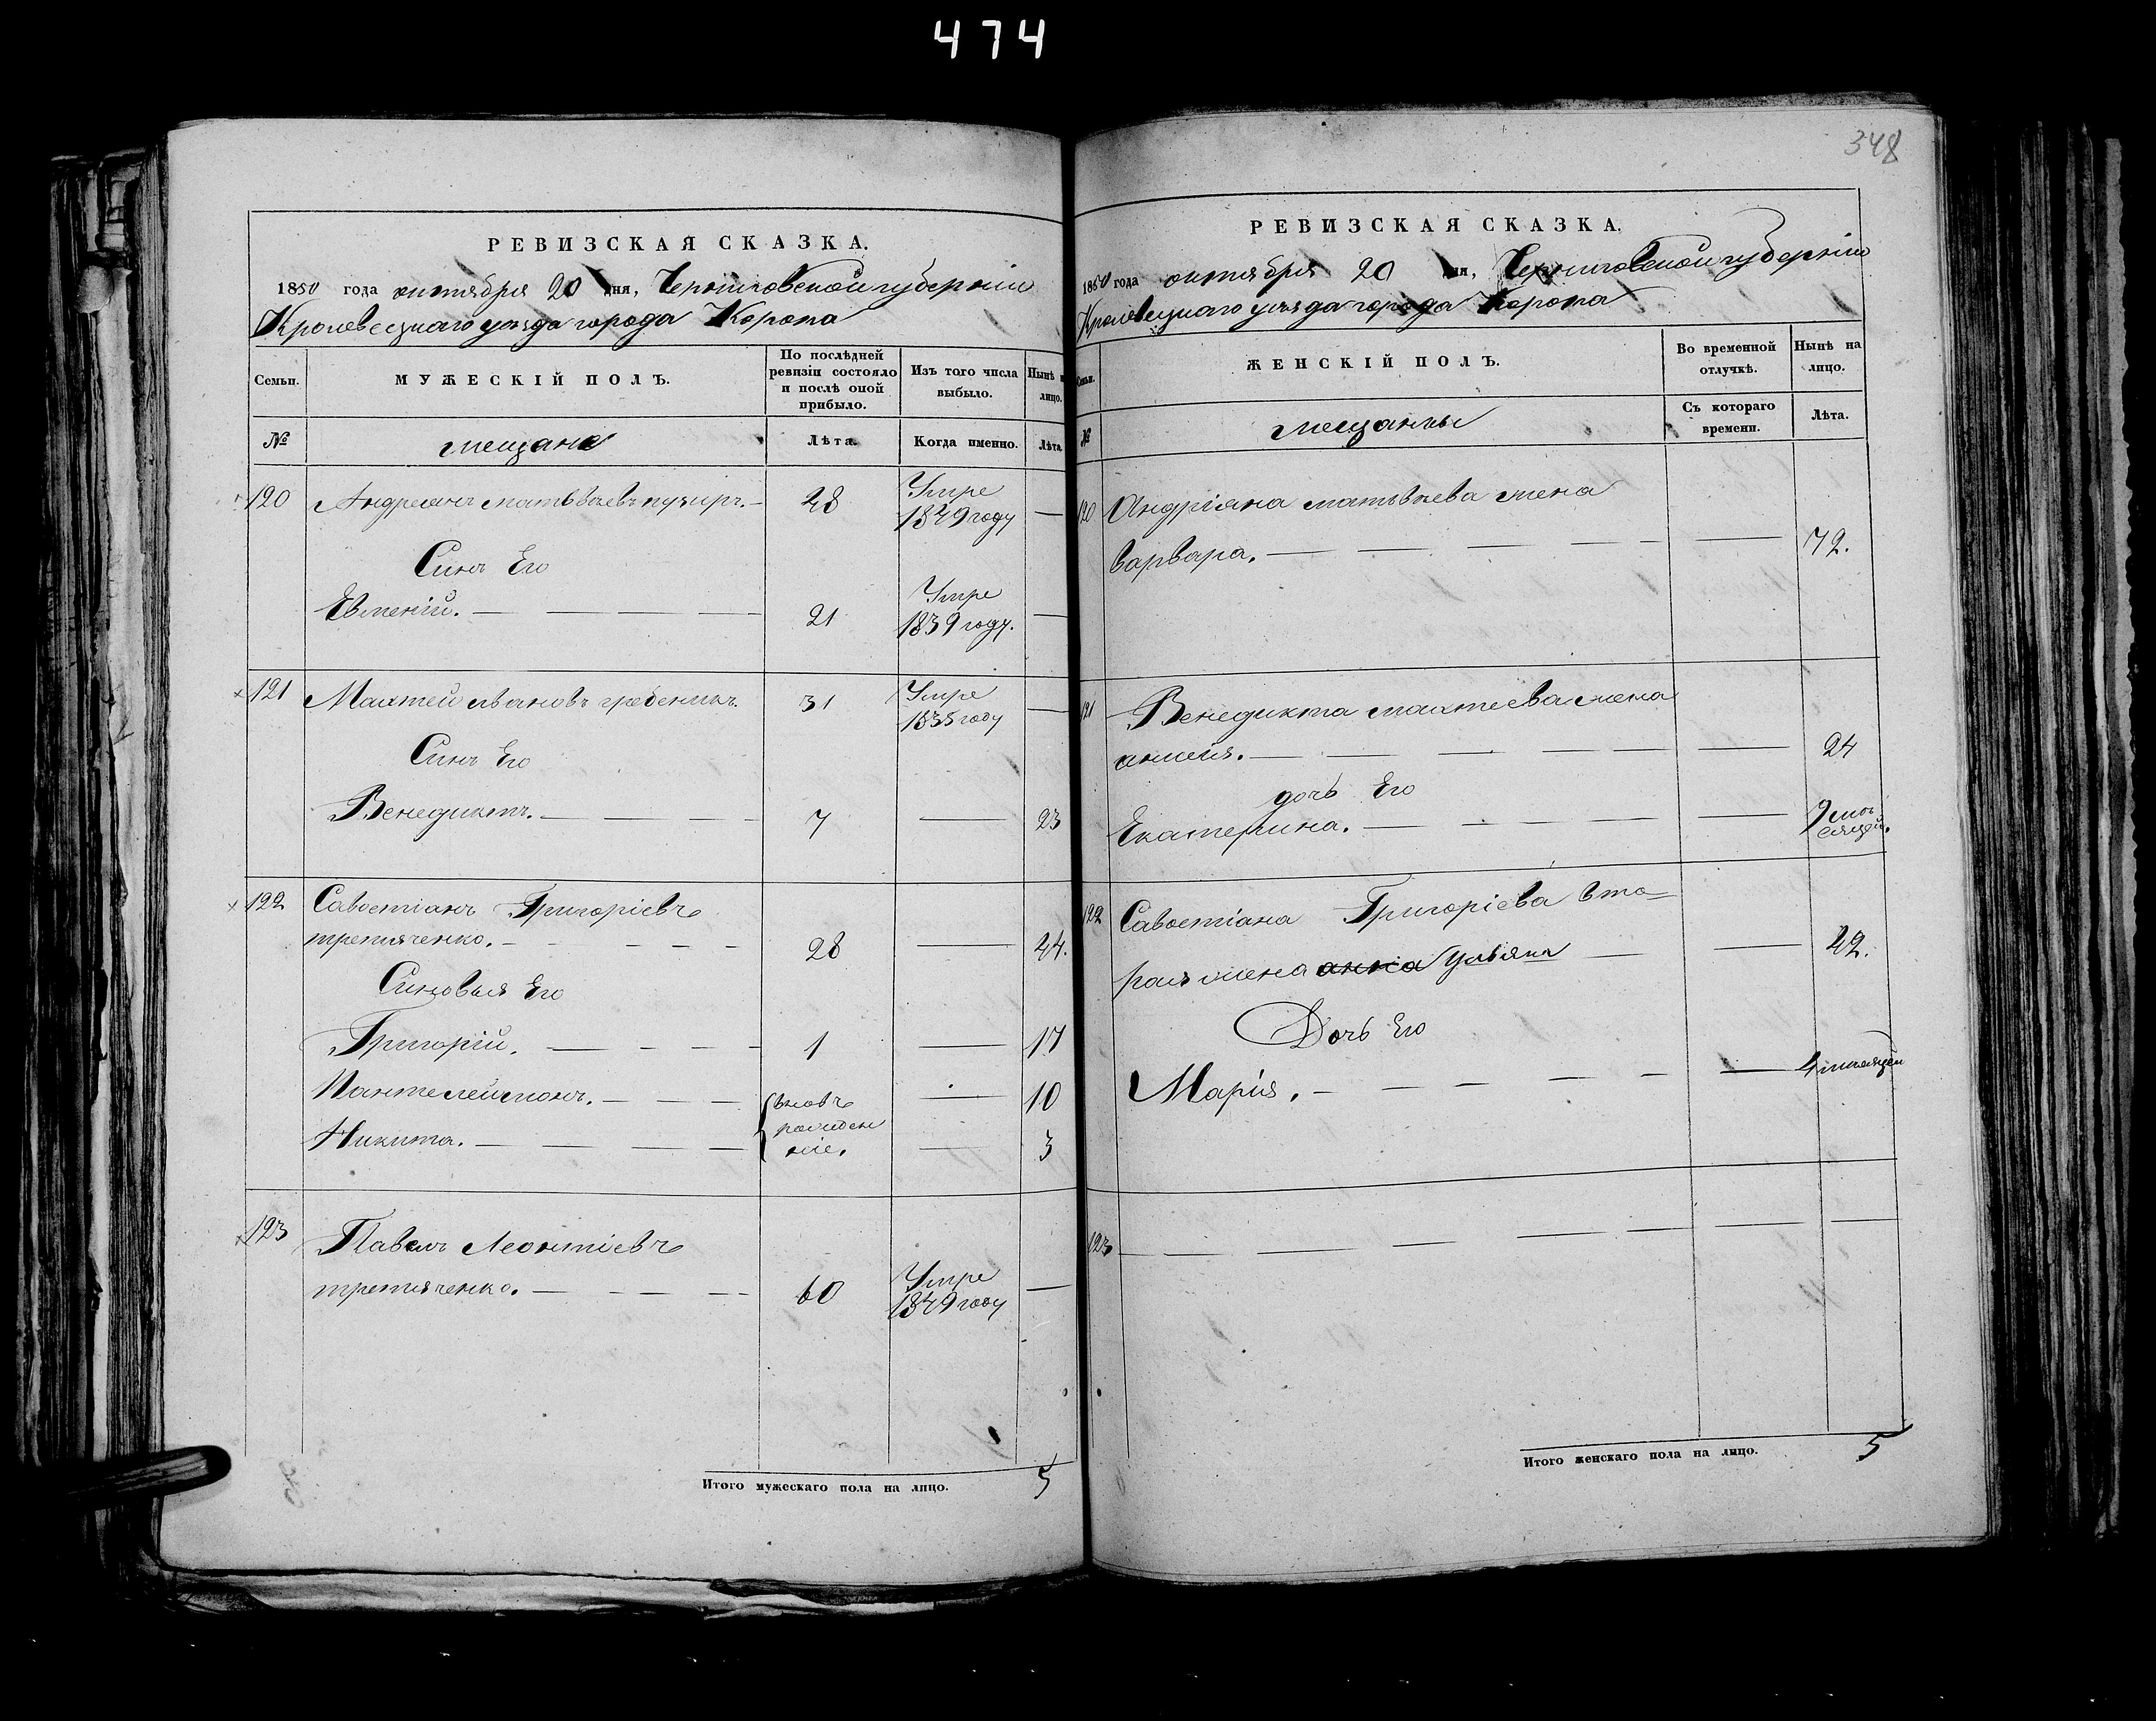 474
348
РЕВИЗСКАЯ СКАЗКА.
1850 года октября 20 дня, Черниговской губерніи
Кролевецкаго уезда города Коропа
Семьи. МУЖЕСКІЙ ПОЛЪ. По послѣдней ревизіи состояло и послѣ оной прибыло. Изъ того числа выбыло. Нынѣ на лицо.
№ мещане Лѣта. Когда именно. Лѣта.
120 Андреянъ матвѣевъ пузиръ. 48 Умре 1849 году —
Синъ Его
Евменій. 21 Умре 1839 году. —
121 Махтей ивановъ гребеникъ. 31 Умре 1835 году —
Синъ Его
Венедиктъ. 7 — 23
122 Савостіанъ Григоріевъ
третяченко. 28 — 44.
Синовья Его
Григорій. 1 — 17
Пантелеймонъ. вновь рожденніе. — 10
Никита. — 3
123 Павелъ Леонтіевъ
третяченко. 60 Умре 1849 году —
Итого мужескаго пола на лицо. 5
РЕВИЗСКАЯ СКАЗКА.
1850 года октября 20 дня, Черниговской губерніи
Кролевецкаго уезда города Коропа
Семьи. ЖЕНСКІЙ ПОЛЪ. Во временной отлучкѣ. Нынѣ на лицо.
№ мещанки Съ котораго времени. Лѣта.
120 Андріяна матвѣева жена
варвара. — 72.
121 Венедикта махтеева жена
— 24
дочь Его
Екатерина. — 9 месяцей.
122 Савостіана Григоріева вто-
рая жена анна Ульяна — 42.
Дочь Его
Марія. — 4 месяцей
123 —
Итого женскаго пола на лицо. 5